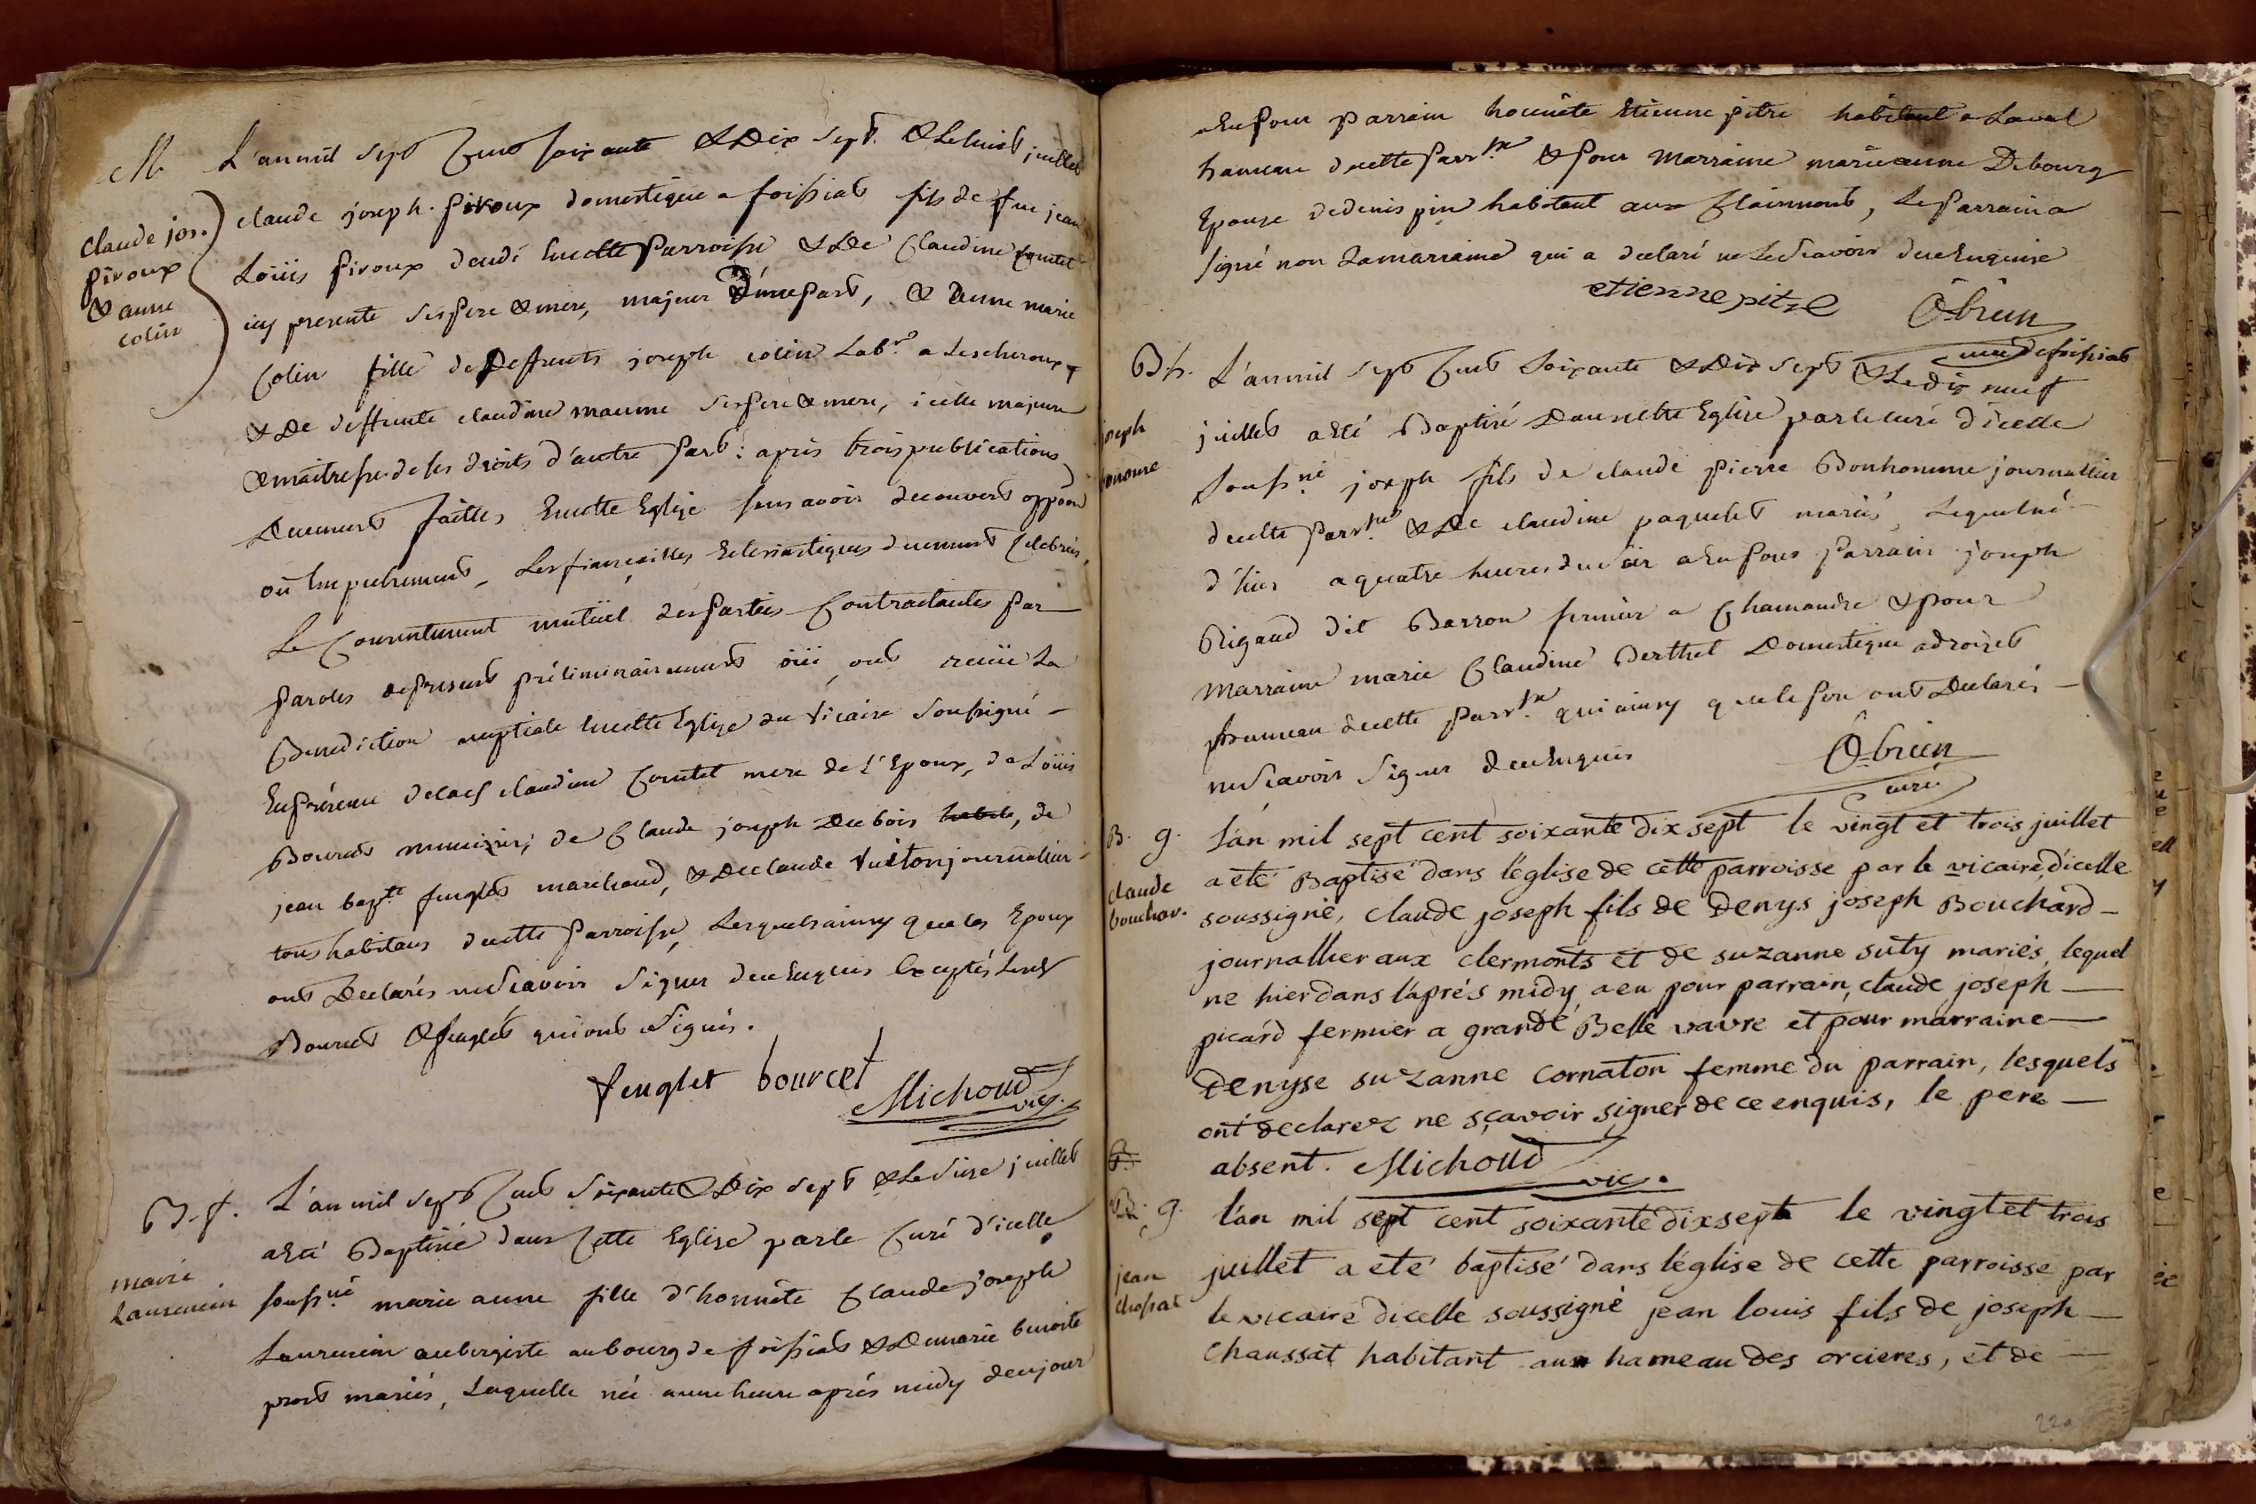 M. L'an mil sept cent soixante & dix sept & le huit juillet
claude jos. piroux & anne colin
claude joseph piroux domestique a foissiat fils de feu jean
Loüis piroux dendé En cette Parroisse & de Claudine Comtet
icy presente ses pere & mere, majeur d'une part, & anne marie
Colin fille de deffunts joseph colin Lab.r a Lescheroux
& de deffunte claudine maume ses pere & mere, icelle majeure
& maitresse de ses droits d'autre part : après trois publications
Duement faittes En cette Eglise sans avoir decouvert oppon
ou Empechement, Les fiançailles Eclesiastiques duement Celebrées,
Le Consentement mutüel des parties Contractantes par
paroles de present préliminairement oüi, ont reçüe La
Benediction nuptiale En cette Eglise du vicaire soussigné
En présence de lad. claudine Comtet mere de l'Epoux, de Loüis
Bourcet de Claude joseph Dubois habit, de
jean bap.te fenglet marchand, & de claude vuiton journalier
tous habitans de cette Parroisse, Lesquels ainsy que les Epoux
ont Declarés ne sçavoir signer de ce Enquis Exceptés Lesd.
Bourcet & fenglet qui ont signés.
fenglet bourcet Michoud vic.
B. f. L'an mil sept cent soixante & Dix sept & le seize juillet
a Eté Baptisée dans Cette Eglise par le Curé d'icelle
marie Laurencin
souss.né marie anne fille d'honnête Claude joseph
Laurencin aubergiste au bourg de foissiat & de marie benoite
prost mariés, Laquelle née a une heure après midy de ce jour
a Eu pour parrain honnête Etienne pitre habitant a Laval
hameau de cette Parr.se & pour Marraine marie anne Debourg
Epouse de denis pin habitant aux Clairmonts, Le Parrain a
signé non La marraine qui a declaré ne Le sçavoir de ce Enquise
etienne pitre Ô-brien
curé de foissiat
B. h. L'an mil sept Cent soixante & Dix sept & Le dix neuf
juillet a Eté Baptisé Dans cette Eglise par le curé d'icelle
joseph bonome
souss.né joseph fils de claude pierre Bonhomme journallier
de cette Parr.se & de claudine paquelet mariés, Lequel né
d'hier a quatre heures du soir a Eu pour Parrain joseph
Rigaud dit Barron fermier a Chamandre & pour
Marraine marie Claudine Berthet Domestique
hameau de cette Parr.se qui ainsy que le pere ont Declarés
ne sçavoir signer de ce Enquis
Ô-brien
curé
B. g. L'an mil sept cent soixante dix sept le vingt et trois juillet
claude bouchar.
a eté Baptisé dans l'église de cette parroisse par le vicaire d'icelle
soussigné, claude joseph fils de Denys joseph Bouchard
journallier aux clermonts et de suzanne suty mariés, lequel
ne hier dans l'aprés midy, a eu pour parrain, claude joseph
picard fermier a grande Belle vavre et pour marraine
Denyse suzanne cornaton femme du parrain, lesquels
ont declarez ne sçavoir signer de ce enquis, le pere
absent. Michoud vic.
B. g. l'an mil sept cent soixante dix sept le vingt et trois
jean chossat
juillet a eté baptisé dans l'église de cette parroisse par
le vicaire d'icelle soussigné jean louis fils de joseph
chaussat habitant au hameau des orcieres, et de